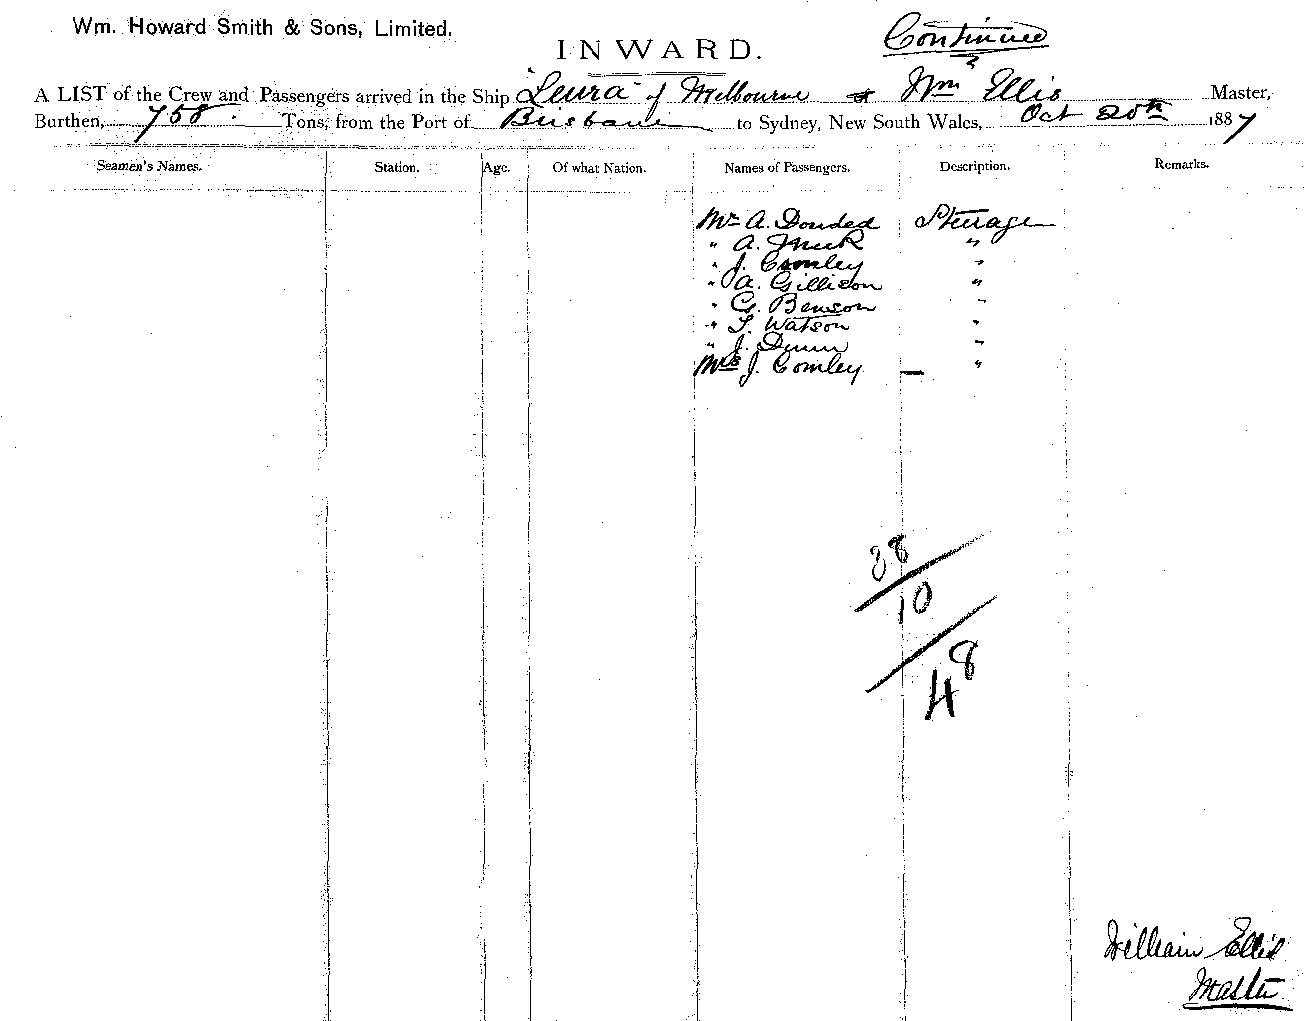 Wm. Howard Smith & Sons, Limited.
Continued
INWARD.
A LIST of the Crew and Passengers arrived in the Ship "Leura" of Melbourne Wm Ellis Master,
Burthen, 758 Tons, from the Port of Brisbane to Sydney, New South Wales, Oct 20th 1887
Seamen's Names. Station. Age. Of what Nation. Names of Passengers. Description. Remarks.
Mr A. Steerage
" A. "
" J. Comley "
" A. Gillison "
" G. Benson "
" T. Watson "
" J. Dunn "
Mrs J. Comley — "
38
10
48
William Ellis
Master